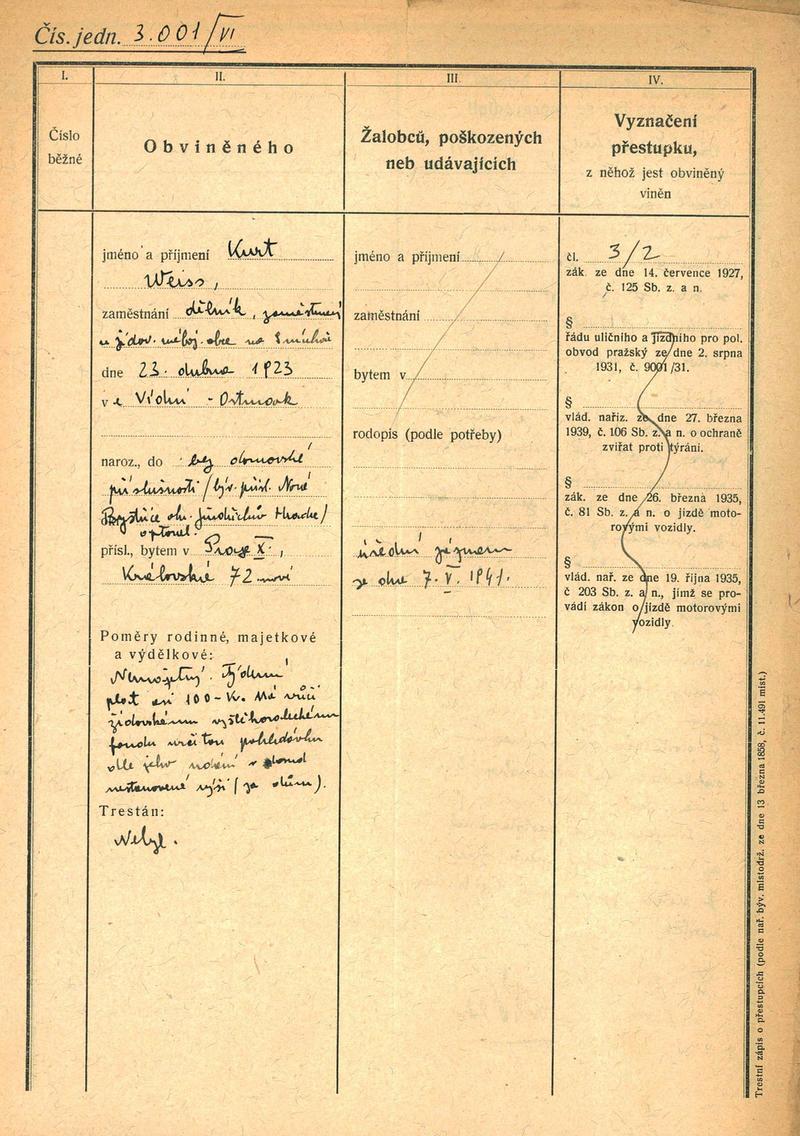 Čís. jedn. 3.001/VI
I.
Číslo
běžné
II.
Obviněného
III.
Žalobců, poškozených
neb udávajících
IV.
Vyznačení
přestupku,
z něhož jest obviněný
viněn
jméno a příjmení Kurt
Weiss,
zaměstnání dělník, zaměstnaný
u židov. nábož. obce na Smíchov
dne 23. dubna 1923
v e Vídni - Ostmark
naroz., do bez domovské
příslušnosti / býv. přísl. Nové
Bystřice okr. Jindřichův Hradec /
přísl., bytem v Praze X.,
Královská 72 nové
Poměry rodinné, majetkové
a výdělkové:
Nemajetný. Týdenní
plat asi 100 - K. Má vůči
židovskému vystěhovaleckému
fondu určitou pohledávku
dle jeho udání v dosud
nestanovené výši (za dům).
Trestán:
Nebyl.
jméno a příjmení
zaměstnání
bytem v
rodopis (podle potřeby)
úřední záznam
ze dne 7. V. 1941.
čl. 3/2
zák. ze dne 14. července 1927,
č. 125 Sb. z. a n.
§
řádu uličního a jízdního pro pol.
obvod pražský ze dne 2. srpna
1931, č. 9001/31.
§
vlád. naříz. ze dne 27. března
1939, č. 106 Sb. z. a n. o ochraně
zvířat proti týrání.
§
zák. ze dne 26. března 1935,
č. 81 Sb. z. a n. o jízdě moto-
rovými vozidly.
§
vlád. nař. ze dne 19. října 1935,
č 203 Sb. z. a n., jímž se pro-
vádí zákon o jízdě motorovými
vozidly.
Trestní zápis o přestupcích (podle nař. býv. místodrž. ze dne 13 března 1858, č. 11.491 míst.)